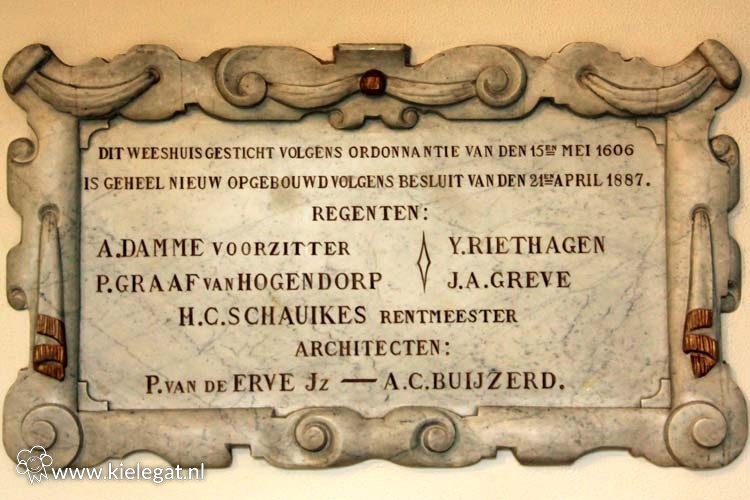 DIT WEESHUIS GESTICHT VOLGENS ORDONNANTIE VAN DEN 15EN MEI 1606
IS GEHEEL NIEUW OPGEBOUWD VOLGENS BESLUIT VAN DEN 21EN APRIL 1887.
REGENTEN:
A. DAMME VOORZITTER Y. RIETHAGEN
P. GRAAF VAN HOGENDORP J. A. GREVE
H. C. SCHAUIKES RENTMEESTER
ARCHITECTEN:
P. VAN DE ERVE Jz — A. C. BUIJZERD.
www.kielegat.nl